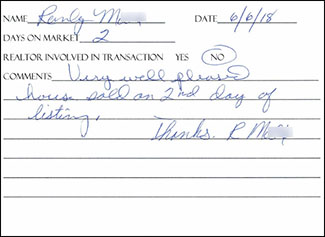 NAME Randy M DATE 6/6/18
DAYS ON MARKET 2
REALTOR INVOLVED IN TRANSACTION YES NO
COMMENTS Very well pleased
house sold on 2nd day of
listing,
Thanks. R M